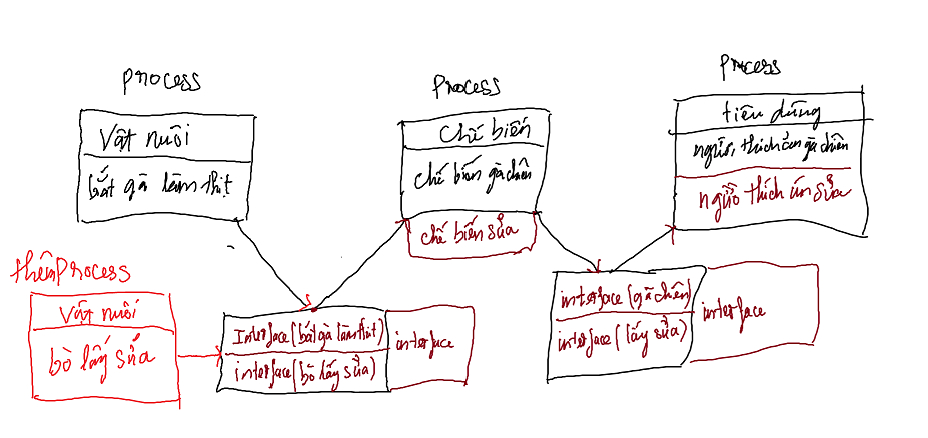 Process
Process
Process
Vật nuôi
bắt gà làm thịt
Chế biến
chế biến gà chiên
chế biến sửa
tiêu dùng
người thích ăn gà chiên
người thích ăn sửa
thêm Process
Vật nuôi
bò lấy sửa
Interface (bắt gà làm thịt)
interface (bò lấy sửa)
interface
interface (gà chiên)
interface (lấy sửa)
interface